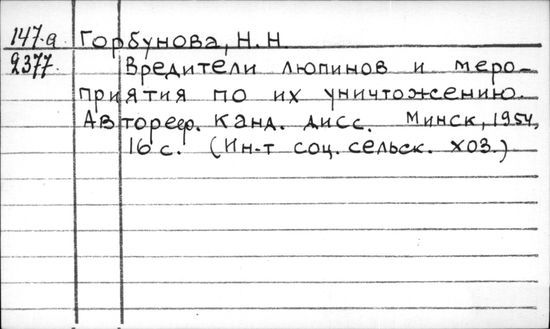 147.а Горбунова, Н.Н
2377. Вредители люпинов и меро-
приятия по их уничтожению.
Автореф. канд. дисс. Минск, 1954,
16 с. (Ин-т соц. сельск. хоз.)